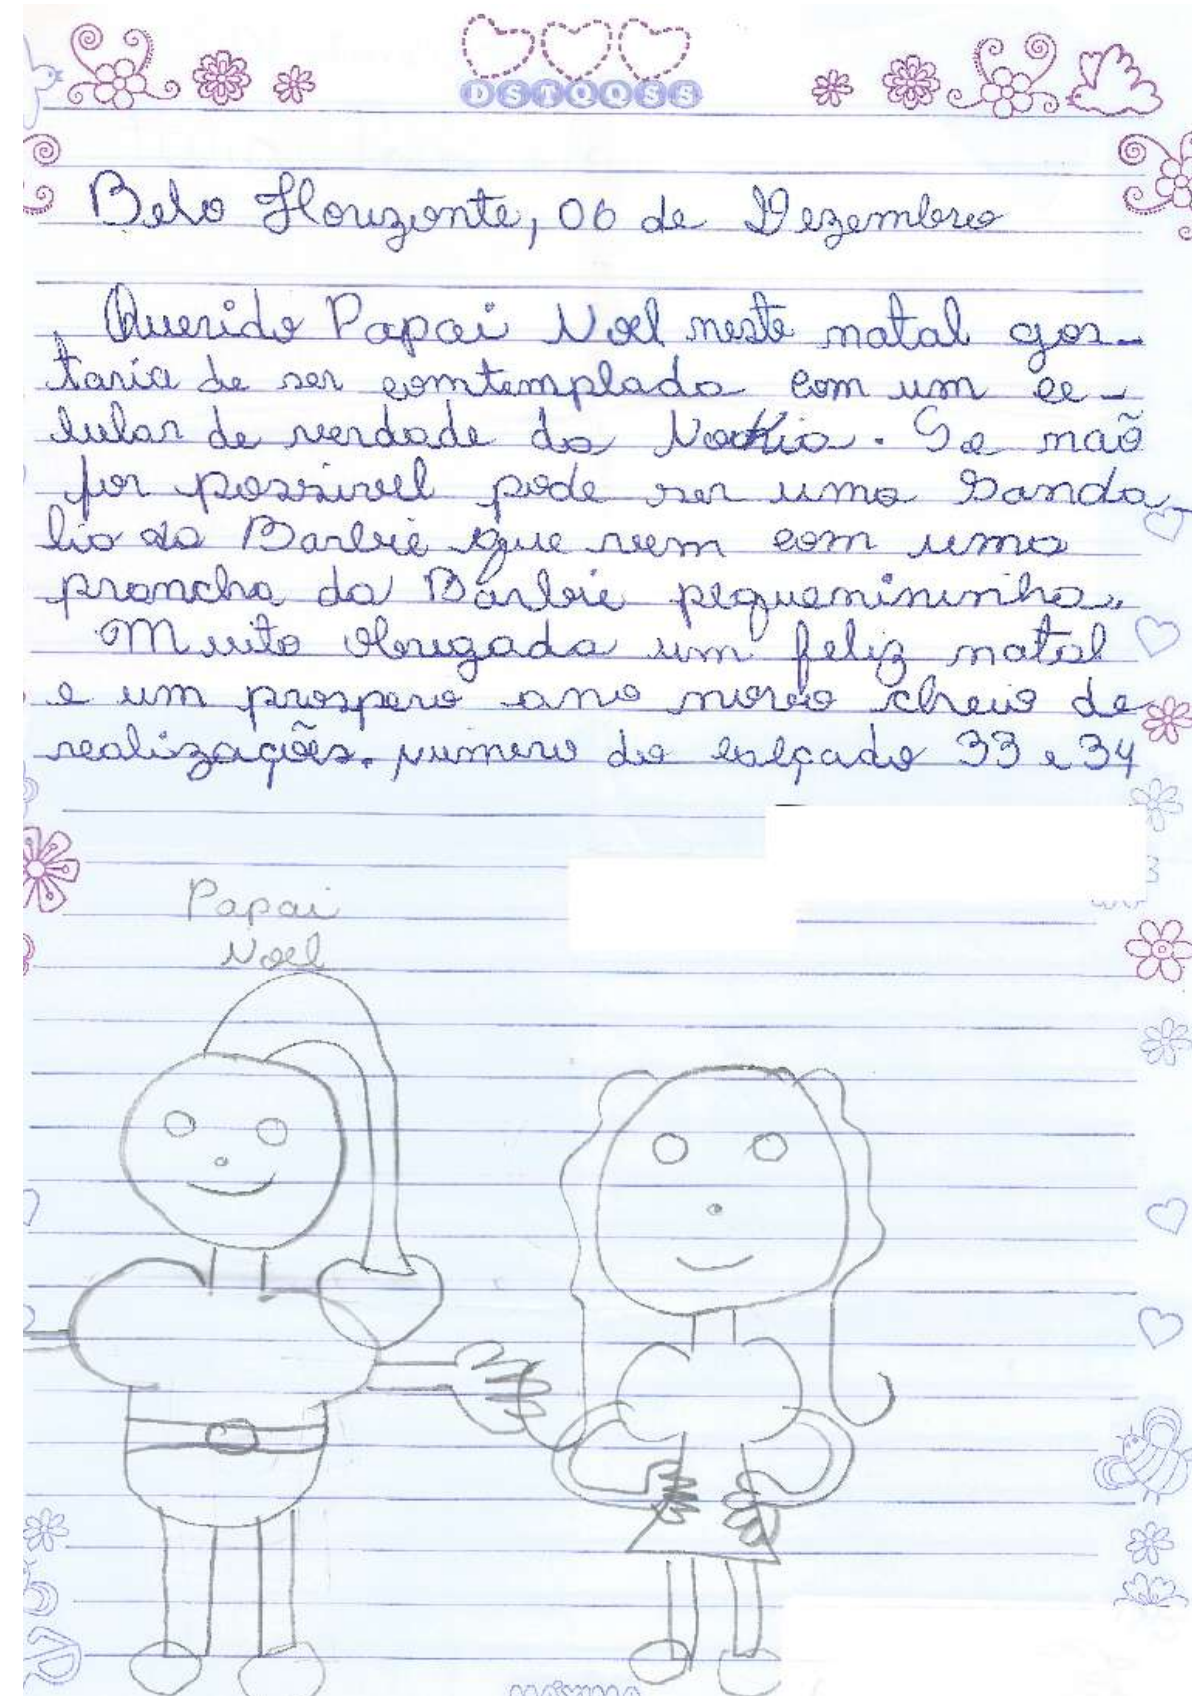 DSTQQSS
Belo Horizonte, 06 de Dezembro
Querido Papai Noel neste natal gos-
taria de ser comtemplada com um ce-
lular de verdade da Nockia. Se não
for possivel pode ser uma Sanda-
lia da Barbie que vem com uma
prancha da Barbie piqueninininha.
Muito Obrigada um feliz natal
e um prospero ano novo cheio de
realizações. numero do calçado 33 e 34
Papai
Noel